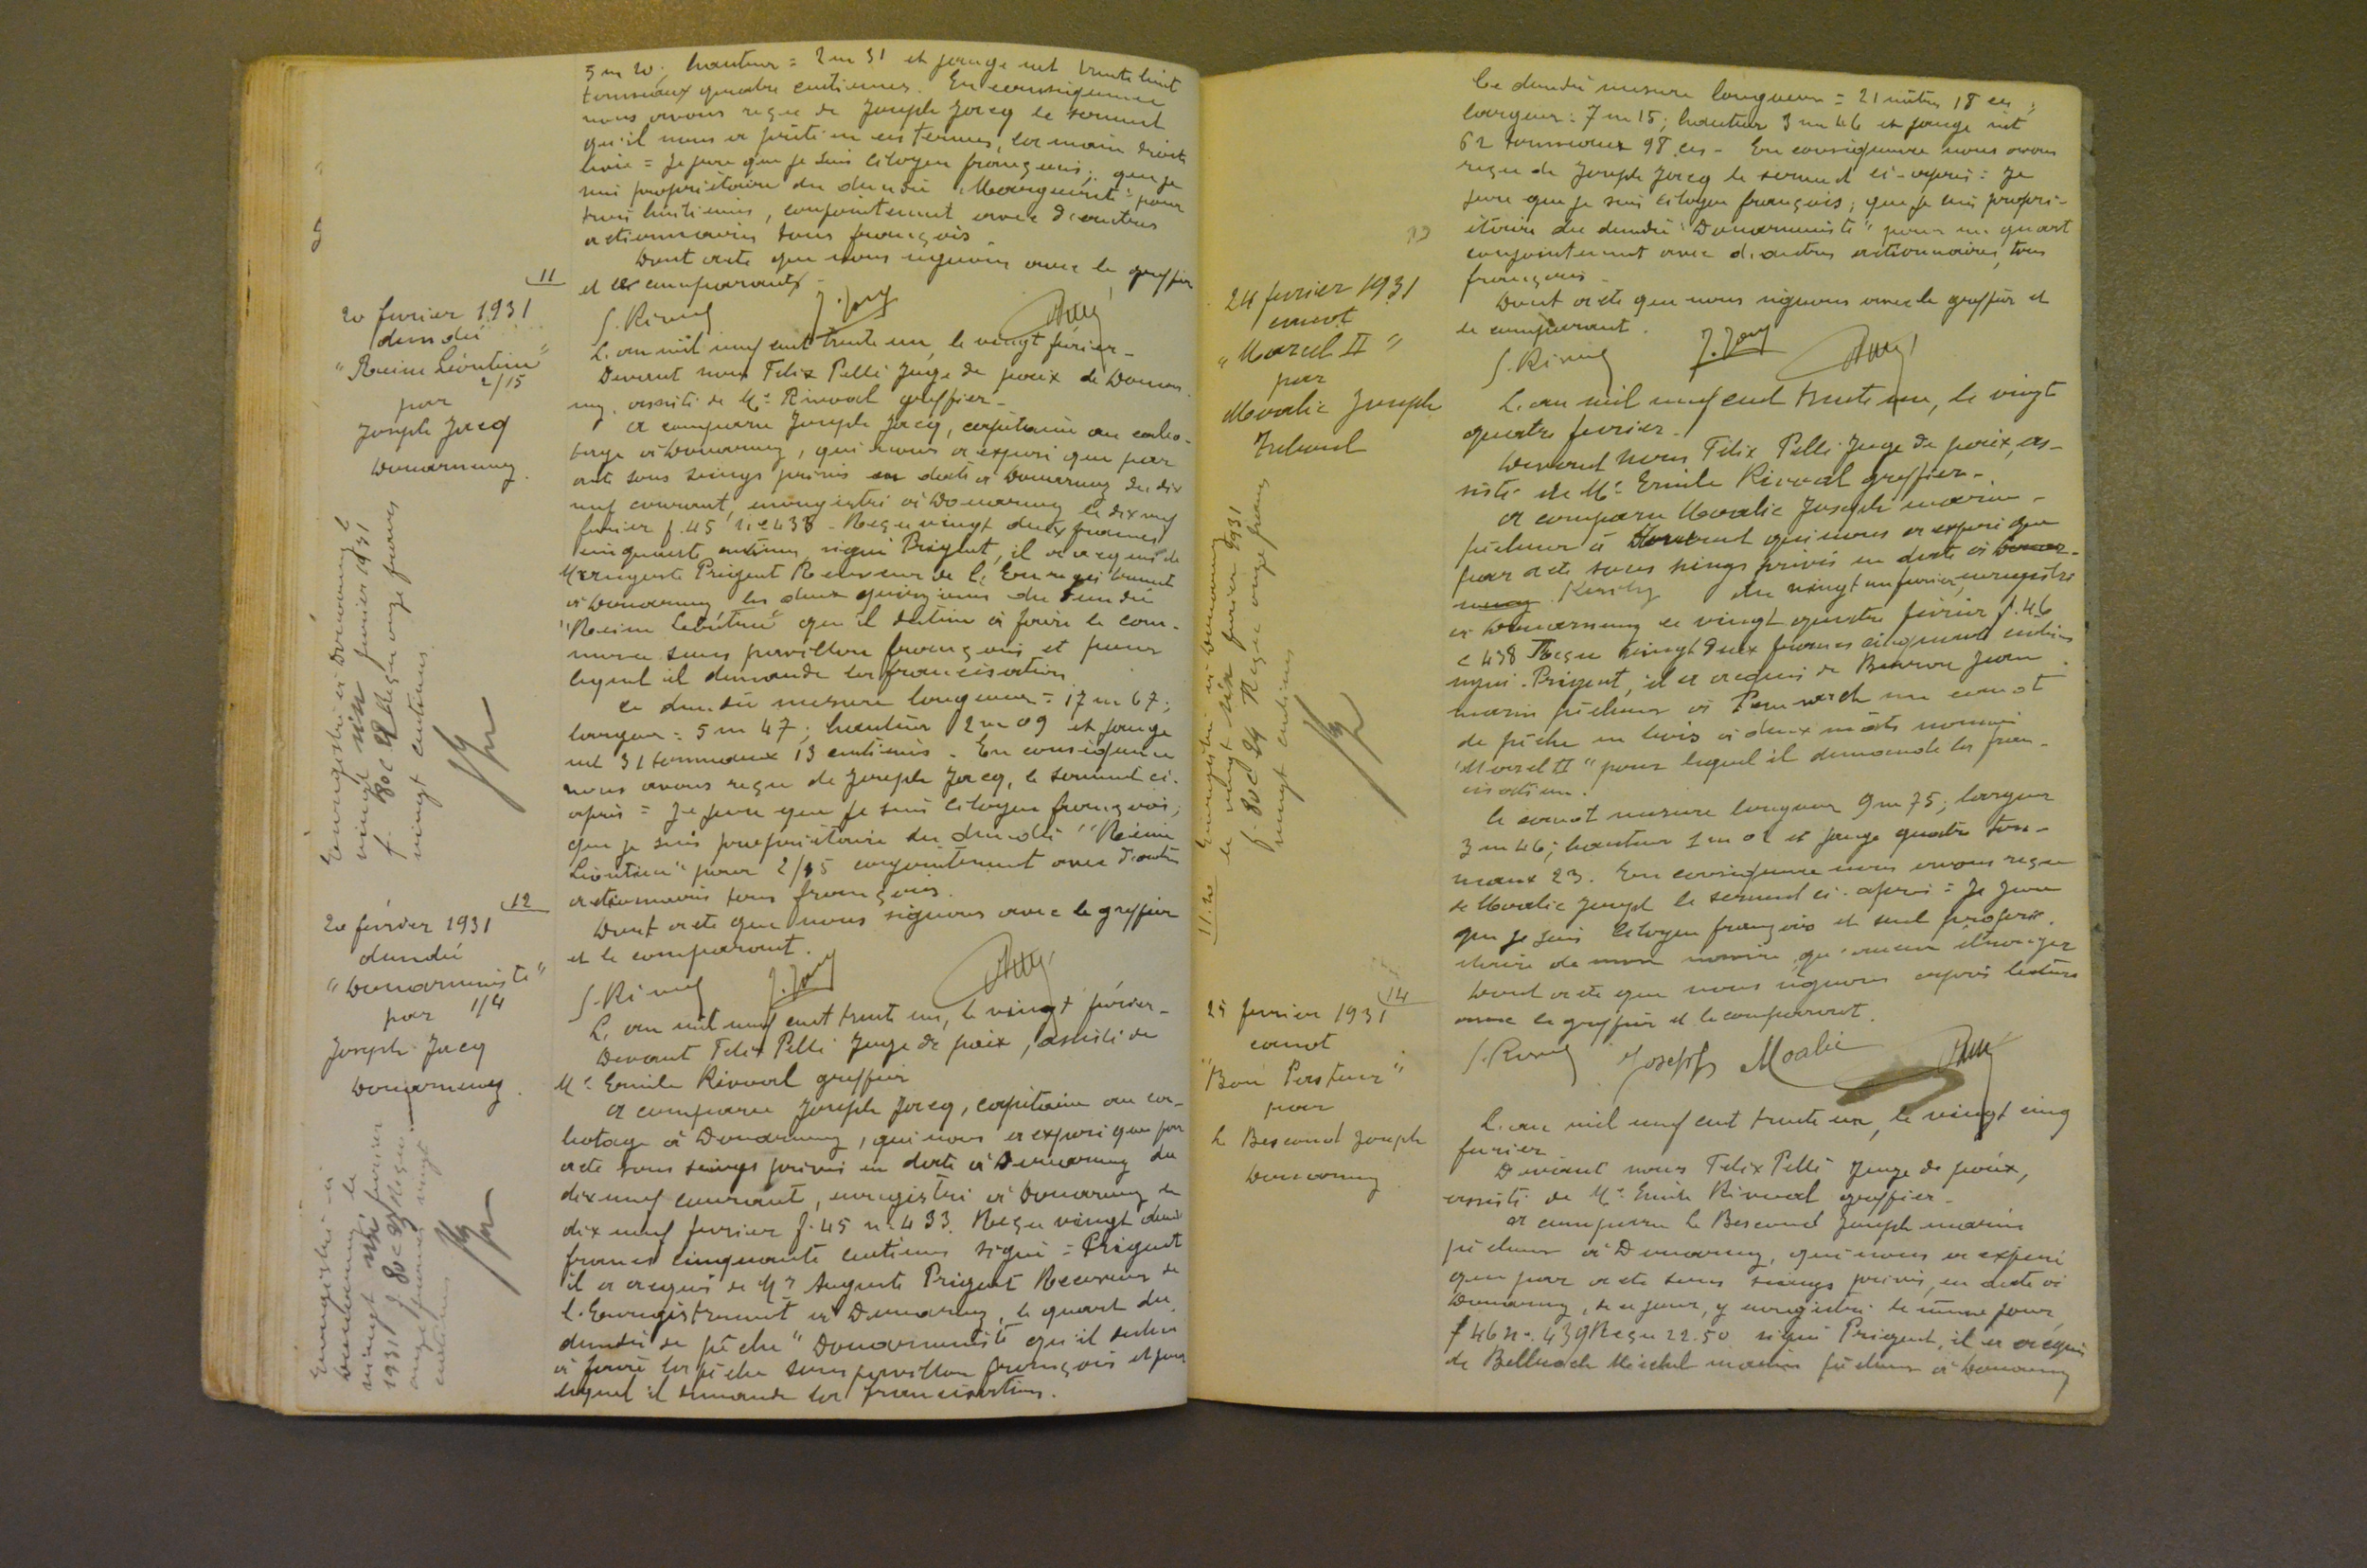 5 m 20; hauteur = 2 m 31 et jauge net trente huit
tonneaux quatre centièmes. En conséquence
nous avons reçu de Joseph Jacq le serment
qu'il nous a prêté en ces termes, la main droite
levée = Je jure que je suis citoyen français; que je
suis propriétaire du dundée "Marguerite" pour
trois huitièmes, conjointement avec d'autres
actionnaires tous français.
Dont acte que nous signons avec le greffier
et le comparant.
11
20 fevrier 1931
dundée
"Reine Léontine"
2/15
par
Joseph Jacq
Douarnenez.
Enregistré à Douarnenez le
vingt six fevrier 1931
f. 80 c Reçu onze francs
vingt centimes
E. Rivoal J. Jacq
L'an mil neuf cent trente un, le vingt février.
Devant nous Félix Pelli Juge de paix de Douarne
nez, assisté de Me Rivoal greffier.
A comparu Joseph Jacq, capitaine au cabo-
tage à Douarnenez, qui nous a exposé que par
acte sous seings privés en date à Douarnenez du dix
neuf courant, enregistré à Douarnenez le dix neuf
fevrier f. 45 n° 438 - Reçu vingt deux francs
cinquante centimes signé Prigent, il a acquis de
Mr Auguste Prigent Receveur de l'Enregistrement
à Douarnenez les deux quinzièmes du dundée
"Reine Léontine" qu'il destine à faire le com-
merce sous pavillon français et pour
lequel il demande la francisation.
Ce dundée mesure longueur = 17 m 67;
largeur = 5 m 47; hauteur 2 m 09 et jauge
net 31 tonneaux 13 centièmes. En conséquence
nous avons reçu de Joseph Jacq, le serment ci-
après = Je jure que je suis citoyen français;
que je suis propriétaire du dundée "Reine
Léontine" pour 2/15 conjointement avec d'autres
actionnaires tous français.
Dont acte que nous signons avec le greffier
et le comparant.
12
20 février 1931
dundée
"Douarneniste"
par 1/4
Joseph Jacq
Douarnenez.
Enregistré à
Douarnenez le
vingt six fevrier
1931 f. 80 c Reçu
onze francs vingt
centimes
E. Rivoal J. Jacq
L'an mil neuf cent trente un, le vingt février.
Devant Félix Pelli Juge de paix, assisté de
Me Emile Rivoal greffier
A comparu Joseph Jacq, capitaine au ca-
botage à Douarnenez, qui nous a exposé que par
acte sous seings privés en date à Douarnenez du
dix neuf courant, enregistré à Douarnenez le
dix neuf fevrier f. 45 n° 433. Reçu vingt deux
francs cinquante centimes signé = Prigent
il a acquis de Mr Auguste Prigent Receveur de
l'Enregistrement à Douarnenez, le quart du
dundée de pêche "Douarneniste" qu'il destine
à faire la pêche sous pavillon français et pour
lequel il demande la francisation.
Ce dundée mesure longueur = 21 mètres 18 ces;
largeur: 7 m 15; hauteur 3 m 46 et jauge net
62 tonneaux 98 ces - En conséquence nous avons
reçu de Joseph Jacq le serment ci-après = Je
jure que je suis citoyen français; que je suis propri-
étaire du dundée "Douarneniste" pour un quart
conjointement avec d'autres actionnaires, tous
français.
Dont acte que nous signons avec le greffier et
le comparant.
13
24 fevrier 1931
canot
"Marcel II"
par
Moalic Joseph
Treboul
Enregistré à Douarnenez
le vingt six fevrier 1931
f. 80 c 24 Reçu onze francs
vingt centimes
11.20
E. Rivoal J. Jacq
L'an mil neuf cent trente un, le vingt
quatre fevrier.
Devant nous Félix Pelli Juge de paix, as-
sisté de Me Emile Rivoal greffier.
A comparu Moalic Joseph marin-
pêcheur à Treboul qui nous a exposé que
par acte sous seings privés en date à Douar-
nenez du vingt un fevrier, enregistré
à Douarnenez le vingt quatre février f. 46
c 438 Reçu vingt deux francs cinquante centimes
signé Prigent, il a acquis de Jean
marin pêcheur à Penmarch un canot
de pêche en bois à deux mâts nommé
"Marcel II" pour lequel il demande la fran-
cisation.
Ce canot mesure longueur 9 m 75; largeur
3 m 46; hauteur 1 m 02 et jauge quatre ton-
neaux 23. En conséquence nous avons reçu
de Moalic Joseph le serment ci-après = Je jure
que je suis citoyen français et seul proprié-
taire de mon navire, qu'aucun étranger
Dont acte que nous signons après lecture
avec le greffier et le comparant.
14
25 fevrier 1931
canot
"Bon Pasteur"
par
Le Bescond Joseph
Douarnenez
E. Rivoal Joseph Moalic
L'an mil neuf cent trente un, le vingt cinq
fevrier
Devant nous Félix Pelli Juge de paix,
assisté de Me Emile Rivoal greffier.
A comparu Le Bescond Joseph marin
pêcheur à Douarnenez, qui nous a exposé
que par acte sous seings privés, en date à
Douarnenez, de ce jour, y enregistré le même jour
f 46 n° 439 Reçu 22.50 signé Prigent, il a acquis
de Michel marin pêcheur à Douarnenez